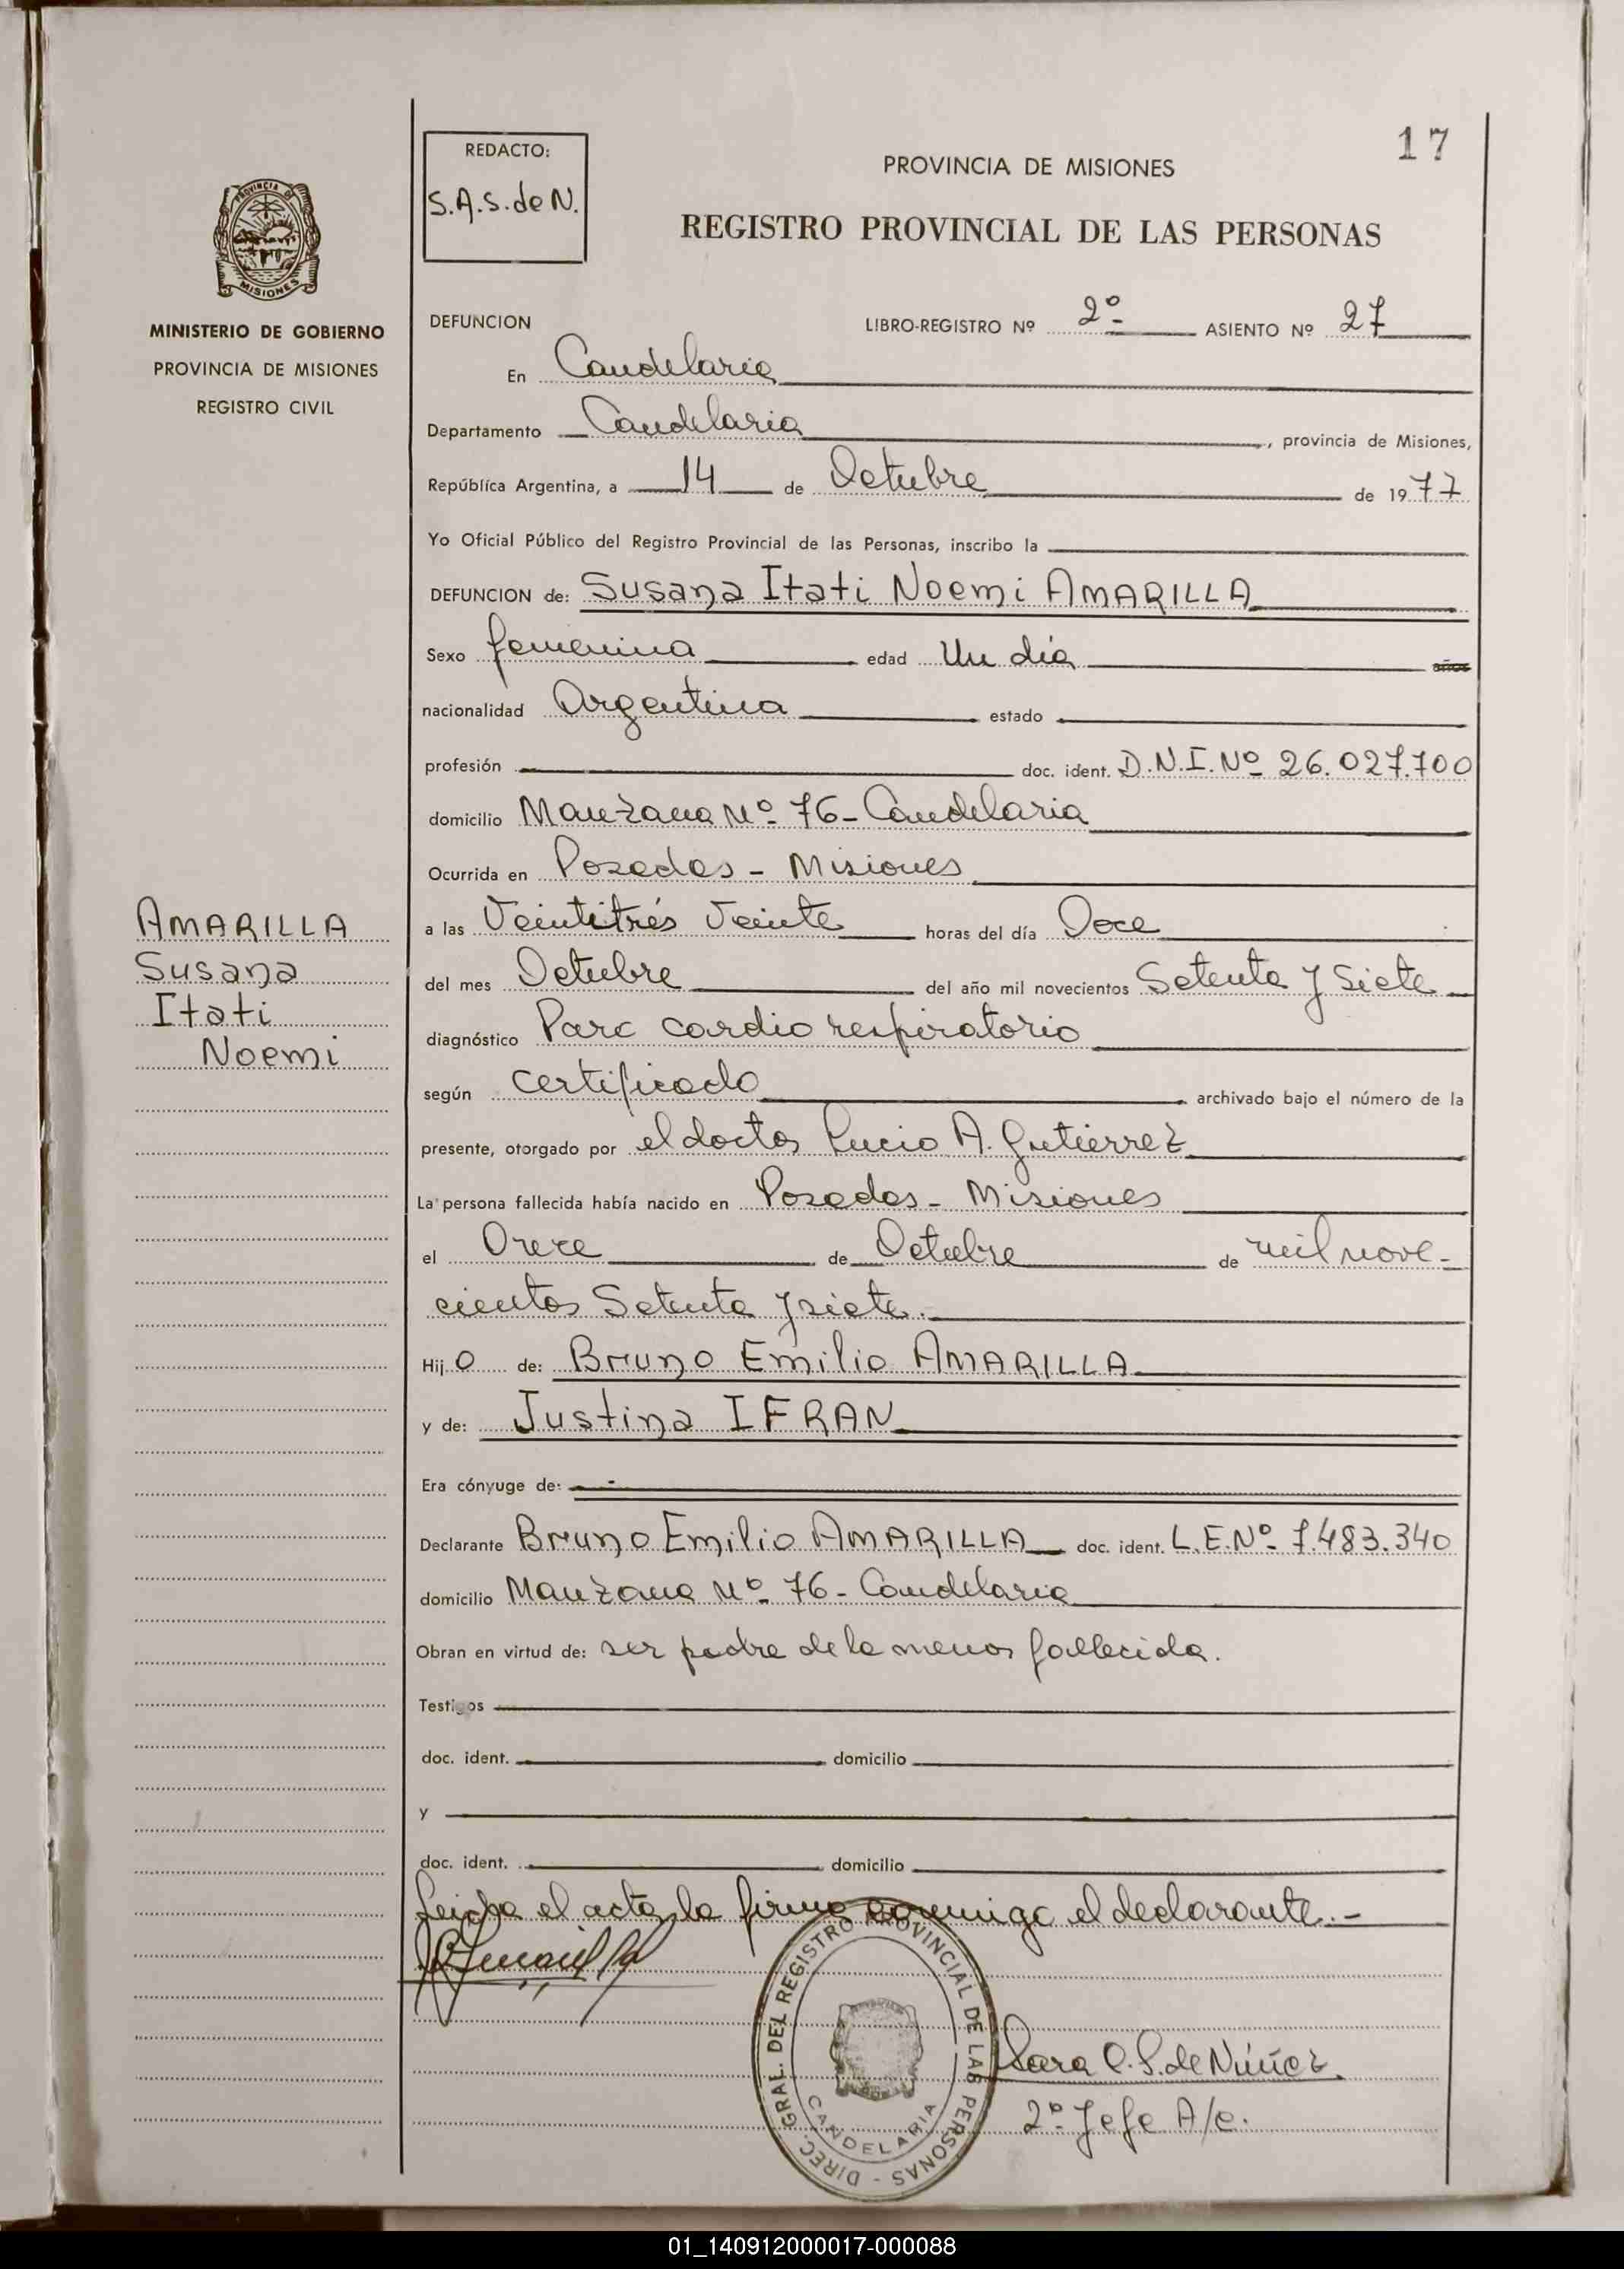 17
REDACTO:
S.A.S. de N.
PROVINCIA DE MISIONES
REGISTRO PROVINCIAL DE LAS PERSONAS
PROVINCIA DE
MISIONES
MINISTERIO DE GOBIERNO
PROVINCIA DE MISIONES
REGISTRO CIVIL
DEFUNCION LIBRO-REGISTRO Nº 2º ASIENTO Nº 27
En Candelaria
Departamento Candelaria, provincia de Misiones,
República Argentina, a 14 de Octubre de 1977
Yo Oficial Público del Registro Provincial de las Personas, inscribo la
DEFUNCION de: Susana Itati Noemi AMARILLA
Sexo femenina edad Un día años
nacionalidad Argentina estado
profesión doc. ident. D.N.I. Nº 26.027.700
domicilio Manzana Nº 76 - Candelaria
Ocurrida en Posadas - Misiones
AMARILLA
Susana
Itati
Noemi
a las Veintitrés Veinte horas del día Doce
del mes Octubre del año mil novecientos Setenta y Siete
diagnóstico Paro cardio respiratorio
según certificado archivado bajo el número de la
presente, otorgado por el doctor Lucio A. Gutierrez
La persona fallecida había nacido en Posadas - Misiones
el Once de Octubre de mil nove-
cientos Setenta y siete.
Hijo de: Bruno Emilio AMARILLA
y de: Justina IFRAN
Era cónyuge de: -
Declarante Bruno Emilio AMARILLA doc. ident. L.E. Nº 7.483.340
domicilio Manzana Nº 76 - Candelaria
Obran en virtud de: ser padre de la menor fallecida.
Testigos
doc. ident. domicilio
y
doc. ident. domicilio
Leída el acta, la firma conmigo el declarante.-
Amarilla
DIREC. GRAL. DEL REGISTRO PROVINCIAL DE LAS PERSONAS -
CANDELARIA
Sara A. S. de Núñez
2º Jefe A/c.
01_140912000017-000088